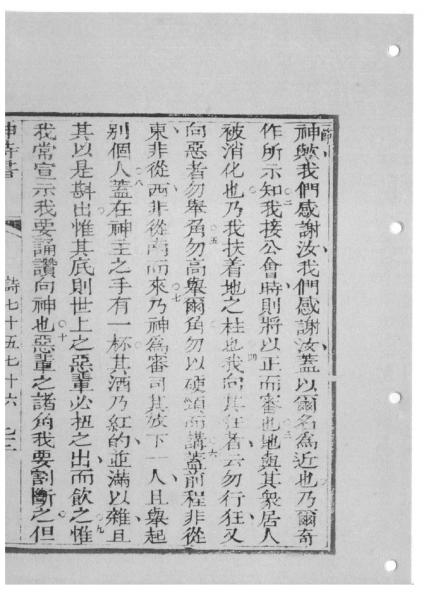 節神歟我們感謝汝我們感謝汝蓋以爾名為近也乃爾奇
作所示知我接公會時則將以正而審也地與其衆居人
被消化也乃我扶着地之柱也我向其狂者云勿行狂又
向惡者勿舉角勿高舉爾角勿以硬頸而講蓋前程非從
東非從西非從南而來乃神爲審司其放下一人且舉起
別個人蓋在神主之手有一杯其酒乃紅的並滿以雜且
其以是斟出惟其底則世上之惡輩必扭之出而飲之惟
我常宣示我要誦讚向神也惡輩之諸角我要割斷之但
神詩書 詩七十五七十六